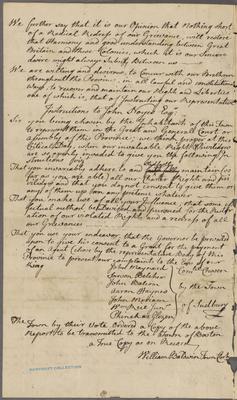 We further say that it is our Opinion that Nothing short
of a Radical Redress of our Greivances, will restore
that Harmony and good understanding between Great
Britain and these Colonies, which it is our Sincere
desire might always Subsist Between us
We are willing and desirous, to Concur with our Brethren
throughout the Province, in all Lawful and constitutional
ways, to recover and maintain our Rights and Liberties
one of which is, that of Instructing our Representatives
Instructions to John Noyes Esqr
Sir, you being chosen by the Inhabitants of this Town
to represent them in the Great and General Court or
Assembly of this Province; we think proper at this
Critical Day, when our invaluable Rights & Priviledges
are so much invaded to give you the following In
structions (viz)
That you invariably adhere to and maintain (so
far as you are able) all our Rights and Pri
viledges and that you do not consent to give them or
any of them up for any pretence whatever
That you make use of all your Influence, that some ef
fectual method be
ation of our violated Rights and a redress of all
our Greivances
That you use your endeavour that the Governor be
upon to give his consent to a Grant for the payment
of an Agent Chose by the representative Body of this
Province to present our complaints to the Ears of our
King
John Maynard
Samson Belcher
John Balcom
Aaron Haynes
John Meriam
Phinehas Glezen
by the Town
of Sudbury
The Town by their Vote Ordered a Copy of the above
Report to be transmitted to the Town of Boston
a True Copy as on Record
William Baldwin Town Clerk